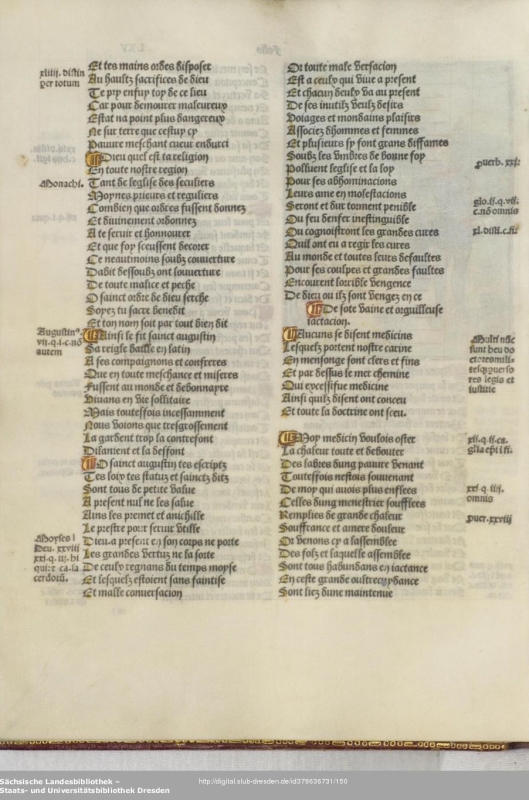 Et tes mains ordes disposer
Au haultz sacrifices de dieu
Te pry enfuy toy de ce lieu
Car pour demourer maleureux
Estat na point plus dangereux
Ne sur terre que cestuy cy
Pauure meschant cueur endurci
O Dieu quel est ta religion
En toute nostre region
Tant de leglise des seculiers
Moynes prieurs et reguliers
Combien que ordres fussent donnez
Et diuinement ordonnez
A te seruir et honnourer
Et que soy sceussent decorer
Ce neautmoins soubz couuerture
Dabit dessoubz ont ouuerture
De toute malice et peche
O sainct ordre de dieu serche
Soyez tu sacre benedit
Et ton nom soit par tout bien dit
Ainsi le fit sainct augustin
Sa reigle baille en latin
A ses compaignons et confreres
Que en toute meschance et miseres
Fussent au monde et debonnayre
Viuans en vie sollitaire
Mais toutesfois incessamment
Nous voions que tresgrossement
La gardent trop la contrefont
Dilanient et la deffont
O sainct augustin tes escriptz
Tes loix tes statuz et sainctz ditz
Sont tous de petite value
A present nul ne les salue
Ains les premet et anichille
Le prestre point seruir vtille
Dieu a present en son corps ne porte
Les grandes vertuz ne la sorte
De ceulx regnans du temps moyse
Et lesquelz estoient sans faintise
Et malle conuersacion
xliiij. distin
per totum
Monachi.
Augustin⁹.
vii.q.i.c.nō
autem
Moyses
Deu. xxviii
xxi.q.
cerdotū.
Or toute male versacion
Est a ceulx qui viue a present
Et chacun deulx va au present
De ses inutilz veulz desirs
Voiages et mondains plaisirs
Associez dhommes et femmes
Et plusieurs sy font grans diffames
Soubz les vmbres de bonne foy
Polluent leglise et la loy
Pour ses abhominacions
Leurs ame en molestacions
Seront et dur torment penible
Ou feu denfer inestinguible
Ou cognoistront les grandes cures
Quil ont eu a regir les cures
Au monde et toutes leurs defaultes
Pour ses coulpes et grandes faultes
Encourent horrible vengence
De dieu ou ilz sont vengez en ce
De sote vaine et orguilleuse
iactacion.
Aucuns se disent medicins
Lesquelz portent nostre carine
En mensonge font clers et fins
Et par dessus le mer chemine
Qui excessifue medicine
Ainsi quilz disent ont conceu
Et toute la doctrine ont sceu.
Moy medicin voulois oster
La chaleur toute et debouter
Des labies dung pauure venant
Toutesfois nestois souuenant
De moy qui auois plus enflees
Celles dung menestrier soufflees
Remplies de grande chaleur
Souffrance et amere douleur
Or venons cy a lassemblee
Des folz et laquelle assemblee
Sont tous habundans en iactance
En ceste grande oultrecuydance
Sont liez dune maintenue
puerb. xxi
glo.ii.q.vii.
c.nō omnis
xl. disti.
Multi nūc
sunt beu do
res legis et
iustitie
xii.q.ii.ca.
glia epi i fi.
xxi.q.iii.
omnis
puer.xxviij
Sächsische Landesbibliothek –
Staats- und Universitätsbibliothek Dresden
http://digital.slub-dresden.de/id378636731/150